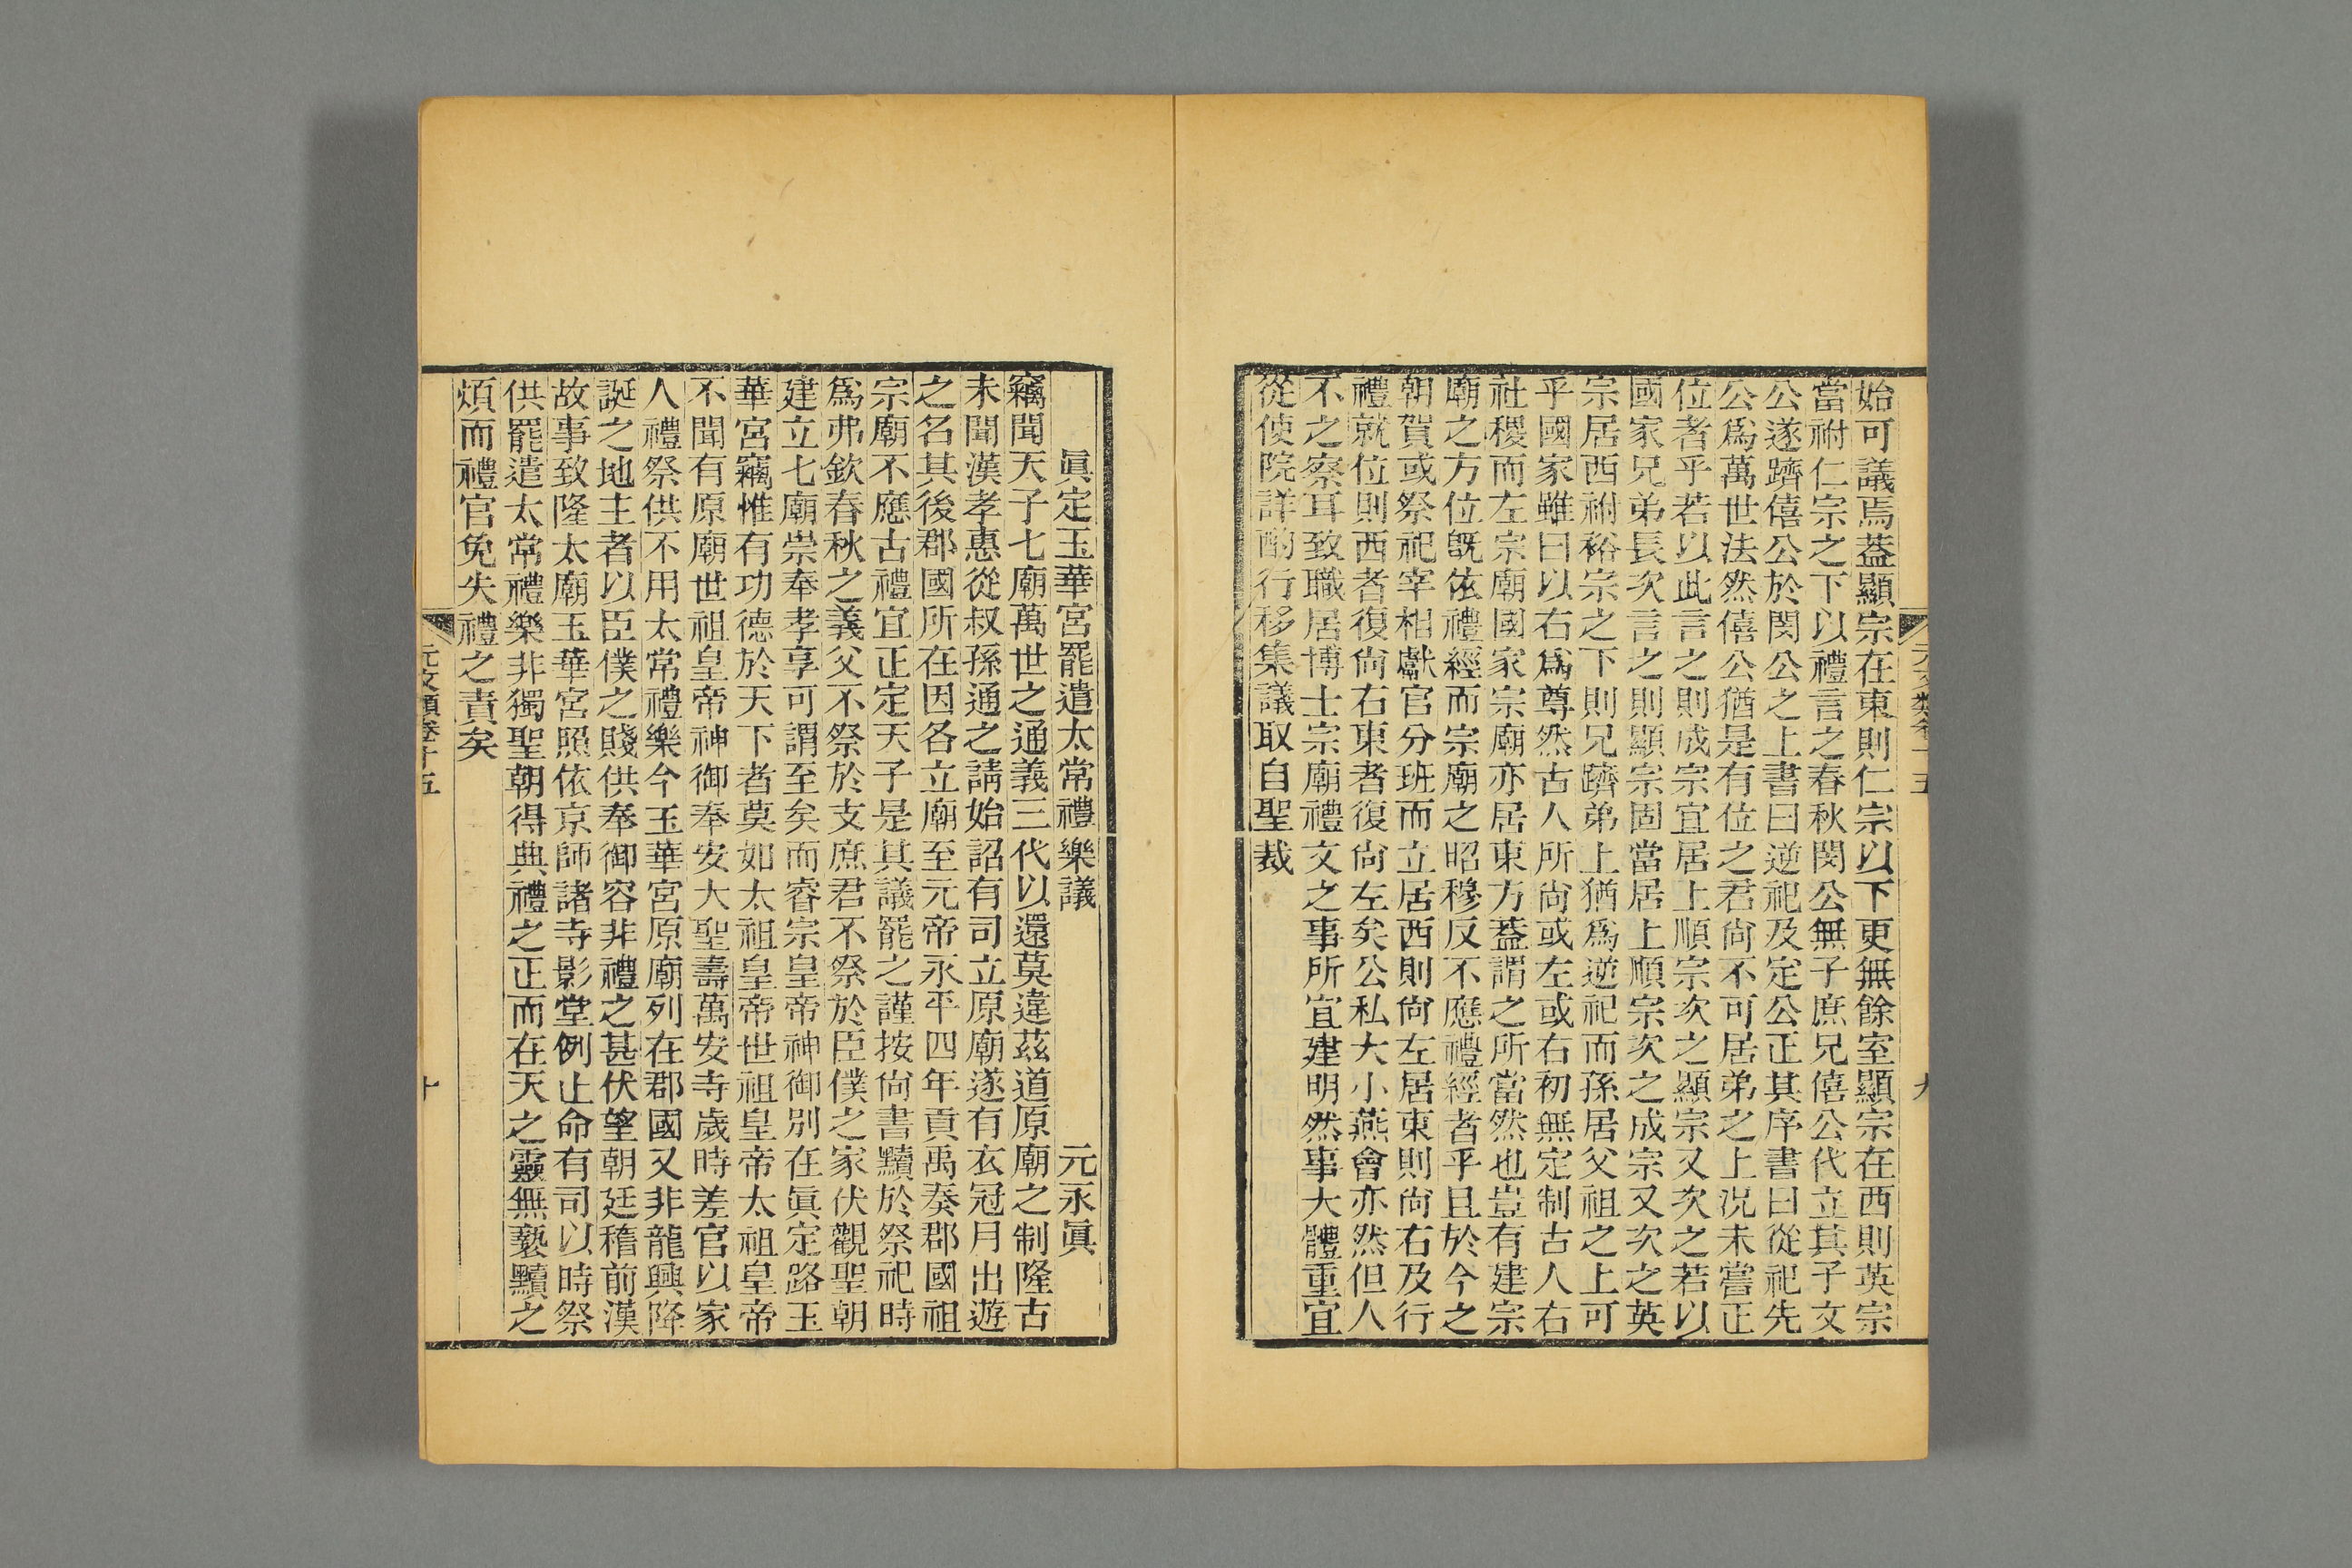 始可議焉葢顯宗在東則仁宗以下更無餘室顯宗在西則英宗
當祔仁宗之下以禮言之春秋閔公無子庶兄僖公代立其子文
公遂躋僖公於閔公之上書曰逆祀及定公正其序書曰從祀先
公爲萬世法然僖公猶是有位之君尙不可居弟之上況未嘗正
位者乎若以此言之則成宗宜居上順宗次之顯宗又次之若以
國家兄弟長次言之則顯宗固當居上順宗次之成宗又次之英
宗居西祔裕宗之下則兄躋弟上猶爲逆祀而孫居父祖之上可
乎國家雖曰以右爲尊然古人所尙或左或右初無定制古人右
社稷而左宗廟國家宗廟亦居東方葢謂之所當然也豈有建宗
廟之方位旣依禮經而宗廟之昭穆反不應禮經者乎且於今之
朝賀或祭祀宰相獻官分班而立居西則尙左居東則尙右及行
禮就位則西者復尙右東者復尙左矣公私大小燕會亦然但人
不之察耳致職居博士宗廟禮文之事所宜建明然事大體重宜
從使院詳酌行移集議取自聖裁
元文類卷十五
九
眞定玉華宮罷遣太常禮樂議 元永眞
竊聞天子七廟萬世之通義三代以還莫違茲道原廟之制隆古
未聞漢孝惠從叔孫通之請始詔有司立原廟遂有衣冠月出遊
之名其後郡國所在因各立廟至元帝永平四年貢禹奏郡國祖
宗廟不應古禮宜正定天子是其議罷之謹按尙書黷於祭祀時
爲弗欽春秋之義父不祭於支庶君不祭於臣僕之家伏觀聖朝
建立七廟崇奉孝享可謂至矣而睿宗皇帝神御別在眞定路玉
華宮竊惟有功德於天下者莫如太祖皇帝世祖皇帝太祖皇帝
不聞有原廟世祖皇帝神御奉安大聖壽萬安寺歲時差官以家
人禮祭供不用太常禮樂今玉華宮原廟列在郡國又非龍興降
誕之地主者以臣僕之賤供奉御容非禮之甚伏望朝廷稽前漢
故事致隆太廟玉華宮照依京師諸寺影堂例止命有司以時祭
供罷遣太常禮樂非獨聖朝得典禮之正而在天之靈無褻黷之
煩而禮官免失禮之責矣
元文類卷十五
十